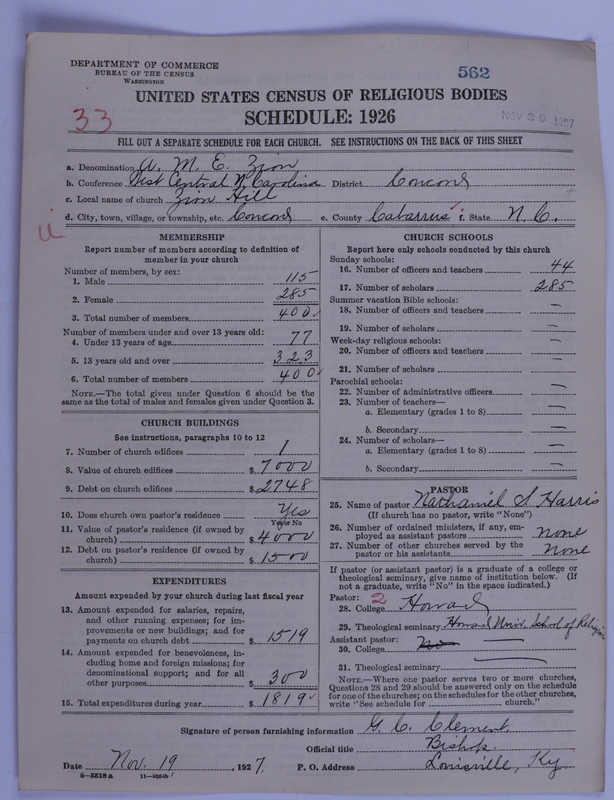 DEPARTMENT OF COMMERCE
BUREAU OF THE CENSUS
WASHINGTON
562
UNITED STATES CENSUS OF RELIGIOUS BODIES
SCHEDULE: 1926
33
NOV 29 1927
FILL OUT A SEPARATE SCHEDULE FOR EACH CHURCH. SEE INSTRUCTIONS ON THE BACK OF THIS SHEET
a. Denomination A. M. E. Zion
b. Conference West Central N. Carolina District Concord
c. Local name of church Zion Hill
d. City, town, village, or township, etc. Concord e. County Cabarrus f. State N. C.
MEMBERSHIP
Report number of members according to definition of
member in your church
Number of members, by sex:
1. Male 115
2. Female 285
3. Total number of members 400
Number of members under and over 13 years old:
4. Under 13 years of age 77
5. 13 years old and over 323
6. Total number of members 400
NOTE.—The total given under Question 6 should be the
same as the total of males and females given under Question 3.
CHURCH BUILDINGS
See instructions, paragraphs 10 to 12
7. Number of church edifices 1
8. Value of church edifices $ 7000
9. Debt on church edifices $ 2748
10. Does church own pastor's residence Yes
Yes or No
11. Value of pastor's residence (if owned by
church) $ 4000
12. Debt on pastor's residence (if owned by
church) $ 1500
EXPENDITURES
Amount expended by your church during last fiscal year
13. Amount expended for salaries, repairs,
and other running expenses; for im-
provements or new buildings; and for
payments on church debt $ 1519
14. Amount expended for benevolences, in-
cluding home and foreign missions; for
denominational support; and for all
other purposes $ 300
15. Total expenditures during year $ 1819
CHURCH SCHOOLS
Report here only schools conducted by this church
Sunday schools:
16. Number of officers and teachers 44
17. Number of scholars 285
Summer vacation Bible schools:
18. Number of officers and teachers —
19. Number of scholars —
Week-day religious schools: —
20. Number of officers and teachers —
21. Number of scholars —
Parochial schools:
22. Number of administrative officers —
23. Number of teachers—
a. Elementary (grades 1 to 8) —
b. Secondary —
24. Number of scholars—
a. Elementary (grades 1 to 8) —
b. Secondary —
PASTOR
25. Name of pastor Nathaniel S Harris
(If church has no pastor, write "None")
26. Number of ordained ministers, if any, em-
ployed as assistant pastors none
27. Number of other churches served by the
pastor or his assistants none
If pastor (or assistant pastor) is a graduate of a college or
theological seminary, give name of institution below. (If
not a graduate, write "No" in the space indicated.)
Pastor: 2
28. College Howard
29. Theological seminary Howard Univ. School of Religion
Assistant pastor:
30. College No —
31. Theological seminary —
NOTE.—Where one pastor serves two or more churches,
Questions 28 and 29 should be answered only on the schedule
for one of the churches; on the schedules for the other churches,
write "See schedule for church."
Signature of person furnishing information G. C. Clement
Official title Bishop
Date Nov. 19, 1927. P. O. Address Louisville, Ky
8—5518a